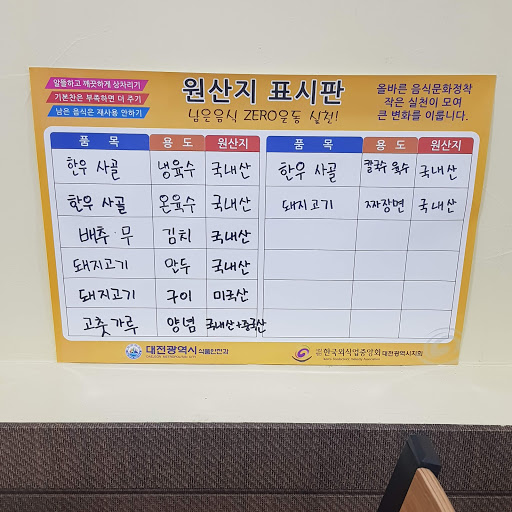 알뜰하고 깨끗하게 상차리기
기본찬은 부족하면 더 주기
남은 음식은 재사용 안하기
원산지 표시판
남은음식 ZERO운동 실천!
올바른 음식문화정착
작은 실천이 모여
큰 변화를 이룹니다.
품 목 용 도 원산지
한우 사골 냉육수 국내산
한우 사골 온육수 국내산
배추·무 김치 국내산
돼지고기 만두 국내산
돼지고기 구이 미국산
고춧가루 양념 국내산+중국산
품 목 용 도 원산지
한우 사골 칼국수 육수 국내산
돼지고기 짜장면 국내산
대전광역시 식품안전과
한국외식업중앙회 대전광역시지회